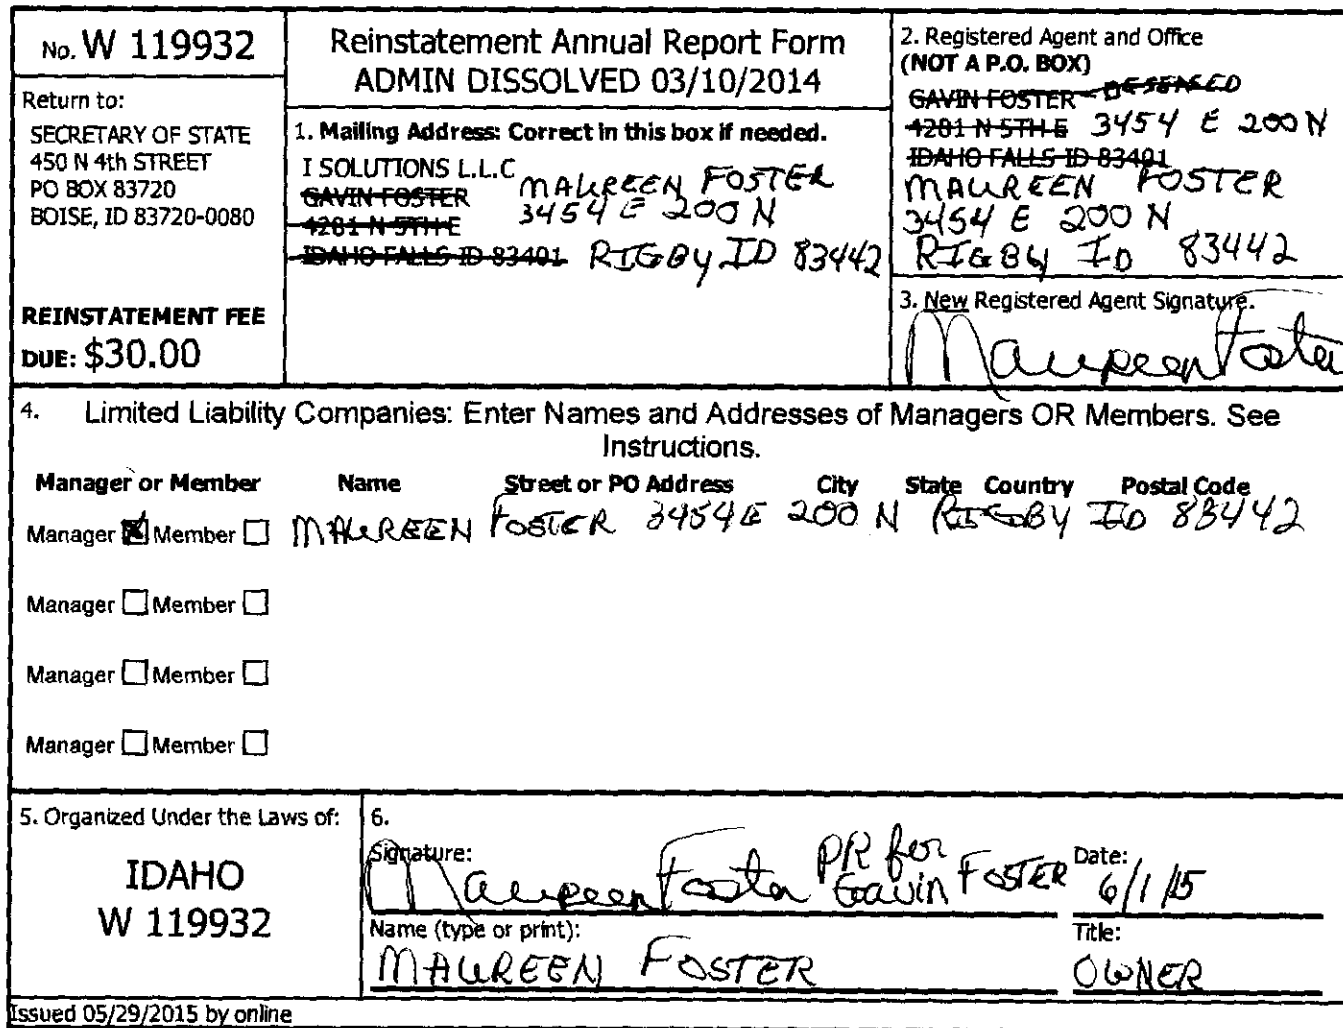 No. W 119932
Return to:
SECRETARY OF STATE
450 N 4th STREET
PO BOX 83720
BOISE, ID 83720-0080
REINSTATEMENT FEE
DUE: $30.00
Reinstatement Annual Report Form
ADMIN DISSOLVED 03/10/2014
1. Mailing Address: Correct in this box if needed.
I SOLUTIONS L.L.C
GAVIN FOSTER MAUREEN FOSTER
4281 N 5TH E 3454 E 200 N
IDAHO FALLS ID 83401 RIGBY ID 83442
2. Registered Agent and Office
(NOT A P.O. BOX)
GAVIN FOSTER - DESEASED
4281 N 5TH E 3454 E 200 N
IDAHO FALLS ID 83401
MAUREEN FOSTER
3454 E 200 N
RIGBY ID 83442
3. New Registered Agent Signature.
Maureen Foster
4. Limited Liability Companies: Enter Names and Addresses of Managers OR Members. See
Instructions.
Manager or Member Name Street or PO Address City State Country Postal Code
Manager Member MAUREEN FOSTER 3454 E 200 N RIGBY ID 83442
Manager Member
Manager Member
Manager Member
5. Organized Under the Laws of:
IDAHO
W 119932
6.
Signature:
Maureen Foster PR for Gavin FOSTER
Date:
6/1/15
Name (type or print):
MAUREEN FOSTER
Title:
OWNER
Issued 05/29/2015 by online